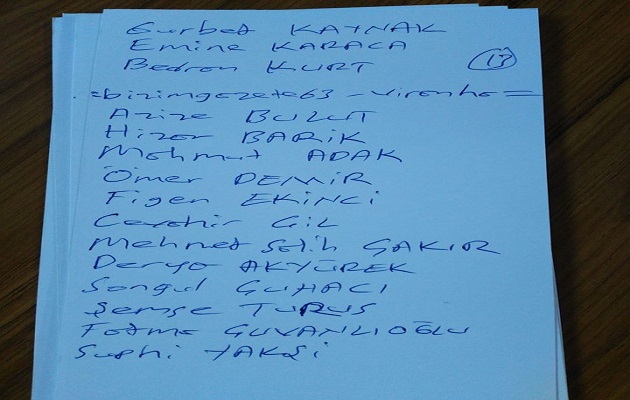 Gurbet KAYNAK
Emine KARACA
Bedran KURT
13
=bizimgazete63 - Viranha=
Azize BULUT
Hizer BARİK
Mahmut ADAK
Ömer DEMİR
Figen EKİNCİ
Cevahir GİL
Mehmet Salih ÇAKIR
Derya AKYÜREK
Songul ÇUHACI
Şemse TURUS
Fatma GUVANLIOĞLU
Suphi YAKŞi